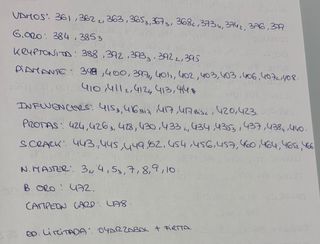 VAMOS: 361, 362₂, 363, 365₃, 367₃, 368₂, 373₄, 374₂, 376, 379
G.ORO: 384, 385₃
KRYPTONITA: 388, 392, 393₃, 392₂, 395
DIAMANTE: 398, 400, 397₂, 401, 402, 403, 403, 406, 407₂, 408
410, 411₂, 412₂, 413, 414
INFLUENCERS: 415₃, 416, 417, 417, 420, 423
PROTAS: 424, 426₂, 428, 430, 433₂, 434, 435₃, 437, 438₂, 440
S.CRACK: 443, 445, 449, 452, 454, 456, 457, 460, 464, 465, 466
N.MASTER: 3₂, 4, 5₃, 7, 8, 9, 10.
B ORO: 472.
CAMPEON CARD: 478
ED. LIMITADA: OYARZABAL +